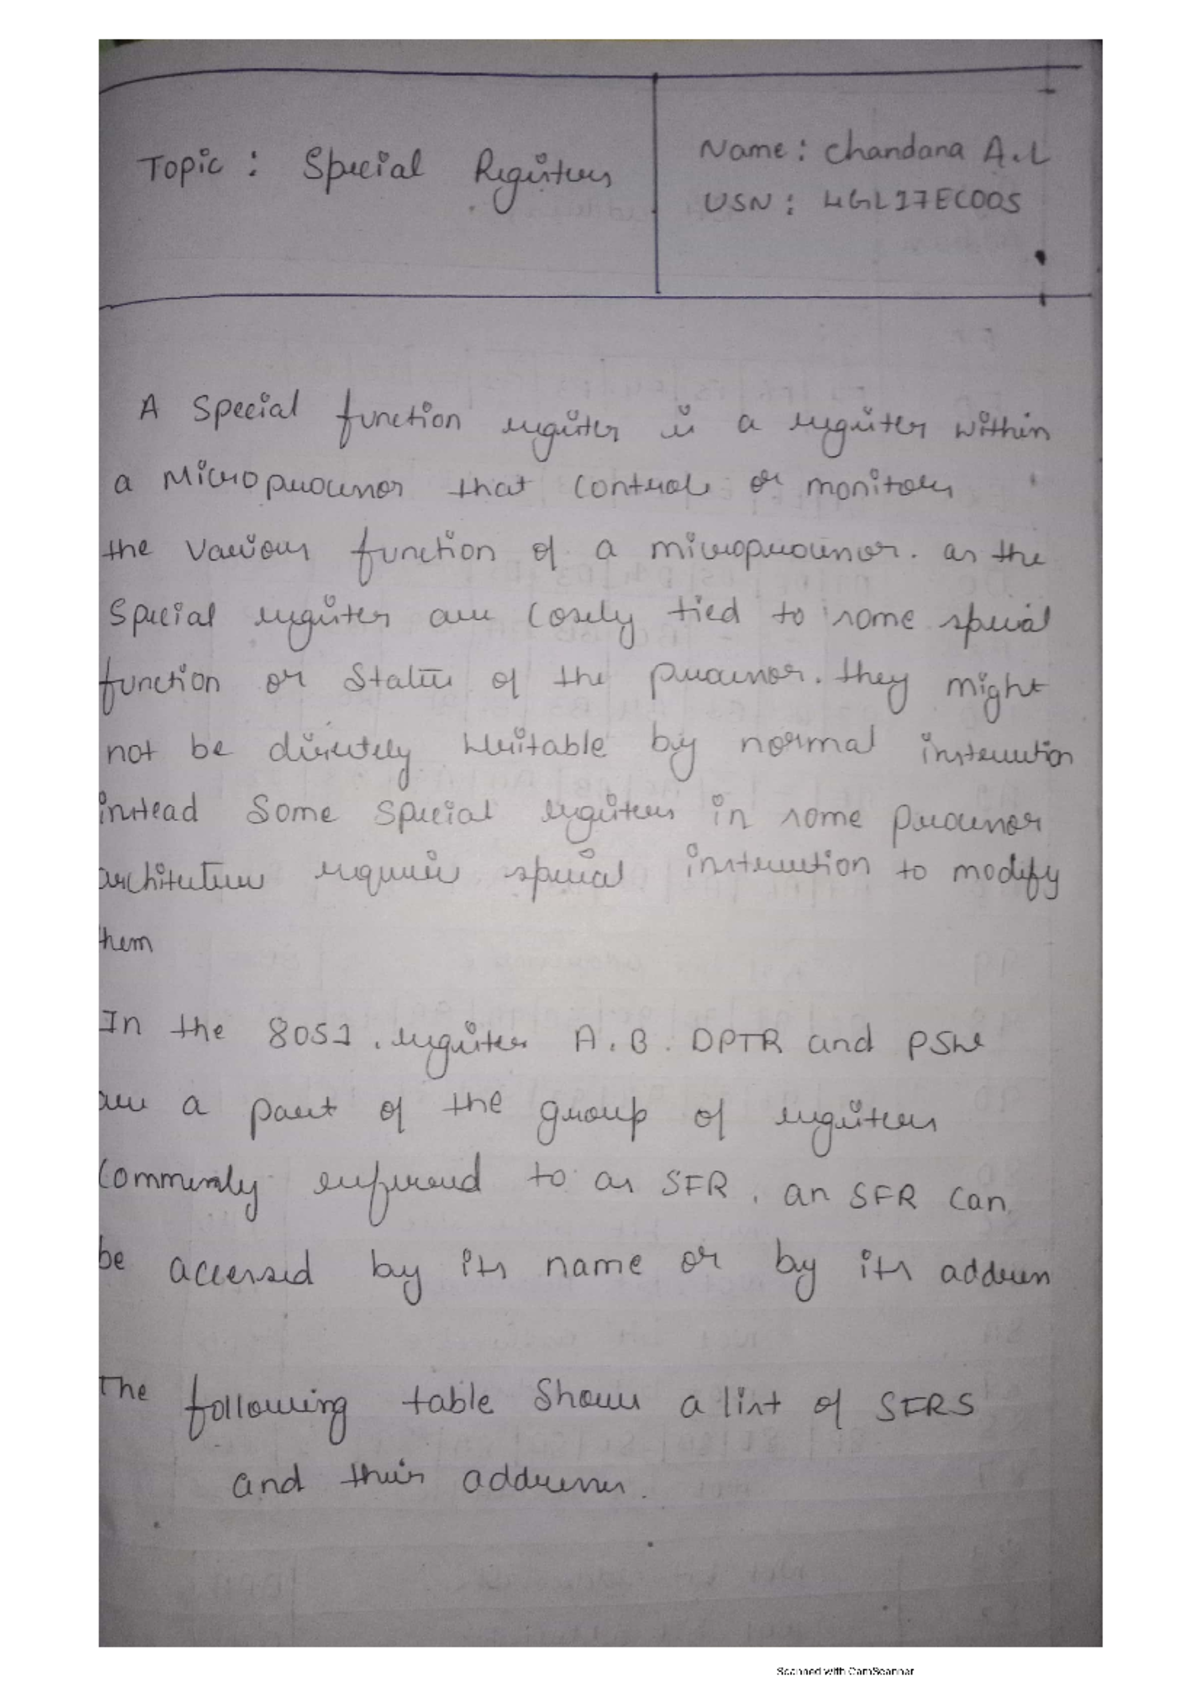 Topic : Special Registers
Name : Chandana A.L
USN : 4GL17EC005
A Special function register is a register within
a Microprocessor that controls or monitors
the various function of a microprocessor. as the
Special register are Cosely tied to some special
function or Status of the processor. they might
not be directely writable by normal instruction
instead Some Special registers in some processor
architecture require special instruction to modify
them
In the 8051 , register A, B, DPTR and PSW
are a part of the group of registers
Commenly refered to as SFR , an SFR can
be accersed by its name or by its address
The following table Shows a list of SFRS
and their addresses.
Scanned with CamScanner